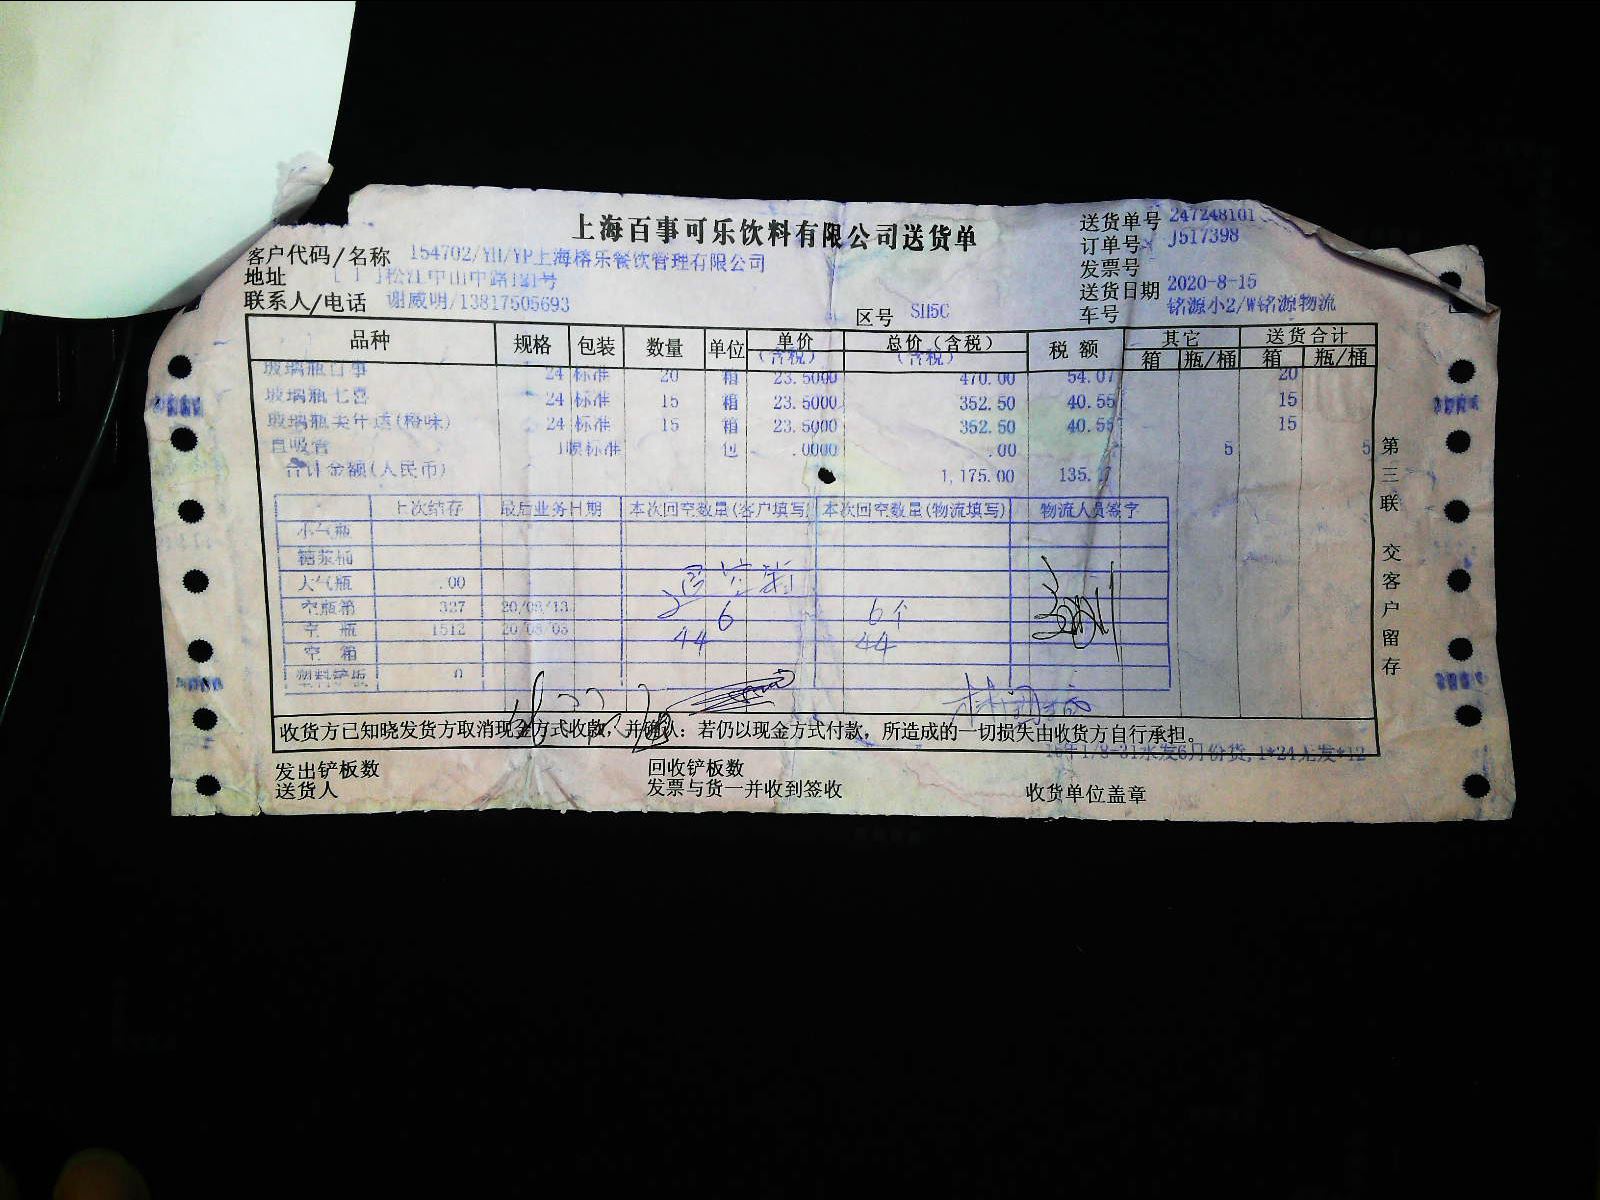 上海百事可乐饮料有限公司送货单
送货单号 247248101
订单号 J517398
发票号
送货日期 2020-8-15
车号 铭源小2/W铭源物流
客户代码/名称 154702/YH/YP上海榕乐餐饮管理有限公司
地址 [ 1 ]松江中山中路121号
联系人/电话 谢威明/13817505693
区号 SH5C
品种 规格 包装 数量 单位 单价(含税) 总价(含税) 税额 其它 送货合计
(含税) (含税) 箱 瓶/桶 箱 瓶/桶
玻璃瓶百事 24 标准 20 箱 23.5000 470.00 54.07 20
玻璃瓶七喜 24 标准 15 箱 23.5000 352.50 40.55 15
玻璃瓶美年达(橙味) 24 标准 15 箱 23.5000 352.50 40.55 15
直吸管 标准 .0000 .00 5 5
合计金额(人民币) 1,175.00 135.17
上次结存 最后业务日期 本次回空数量(客户填写) 本次回空数量(物流填写) 物流人员签字
小气瓶
糖浆桶
大气瓶 .00
空瓶箱 327 20/08/13 6 6个
空 瓶 1512 20/08/03 44 44
空 箱
塑料铲板 0
收货方已知晓发货方取消现金方式收款,并确认:若仍以现金方式付款,所造成的一切损失由收货方自行承担。
发出铲板数 回收铲板数
送货人 发票与货一并收到签收 收货单位盖章
第三联 交客户留存